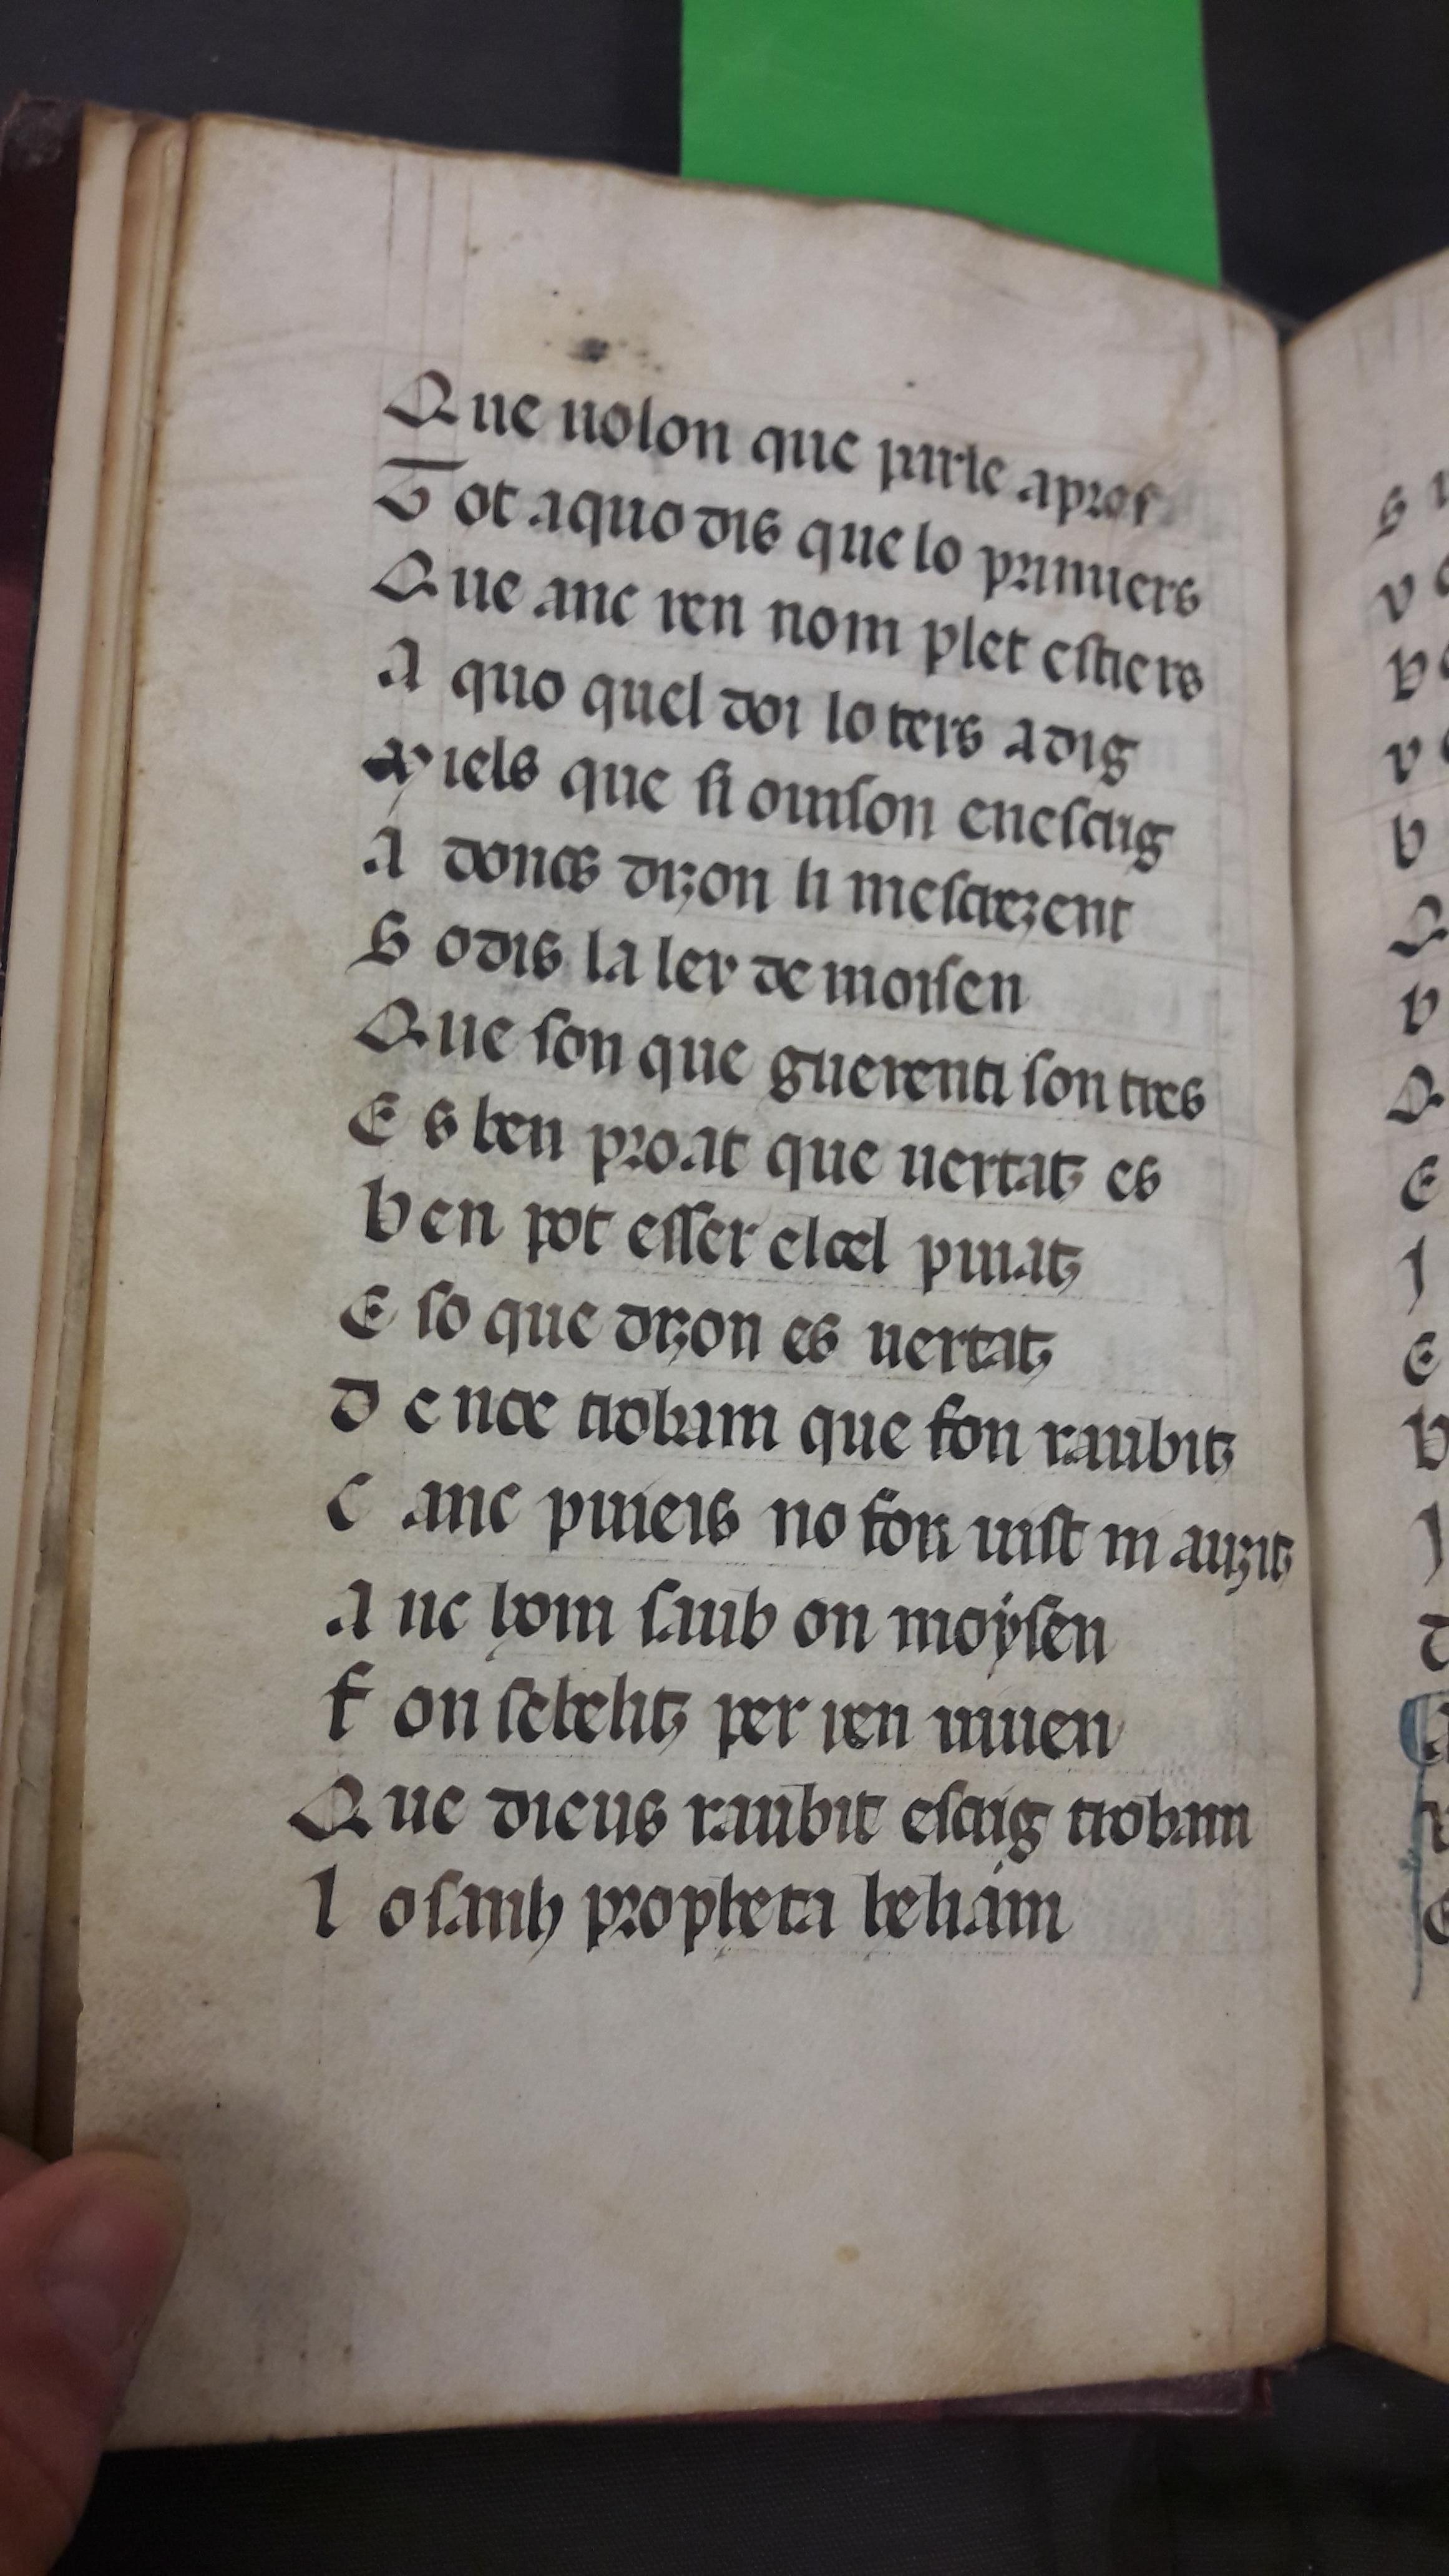 Que uolon que parle apres
Tot aquo dis que lo primiers
Que anc ren nom plet estiers
A quo quel doi lo ters a dig
Miels que si ouison enescrig
A doncs dizon li mescrezent
So dis la ley de moisen
Que son que guerenti son tres
Es ben proat que uertatz es
ben pot esser el cel puiatz
E so que dizon es uertatz
de noe trobam que fon raubitz
C anc pueis no fon uist ni auzitz
A nc hom saub on moysen
f on sebelitz per ren uiuen
Que dieus raubit escrig trobam
lo sanh propheta heliam
S
v
b
v
b
Q
v
Q
E
J
E
b
J